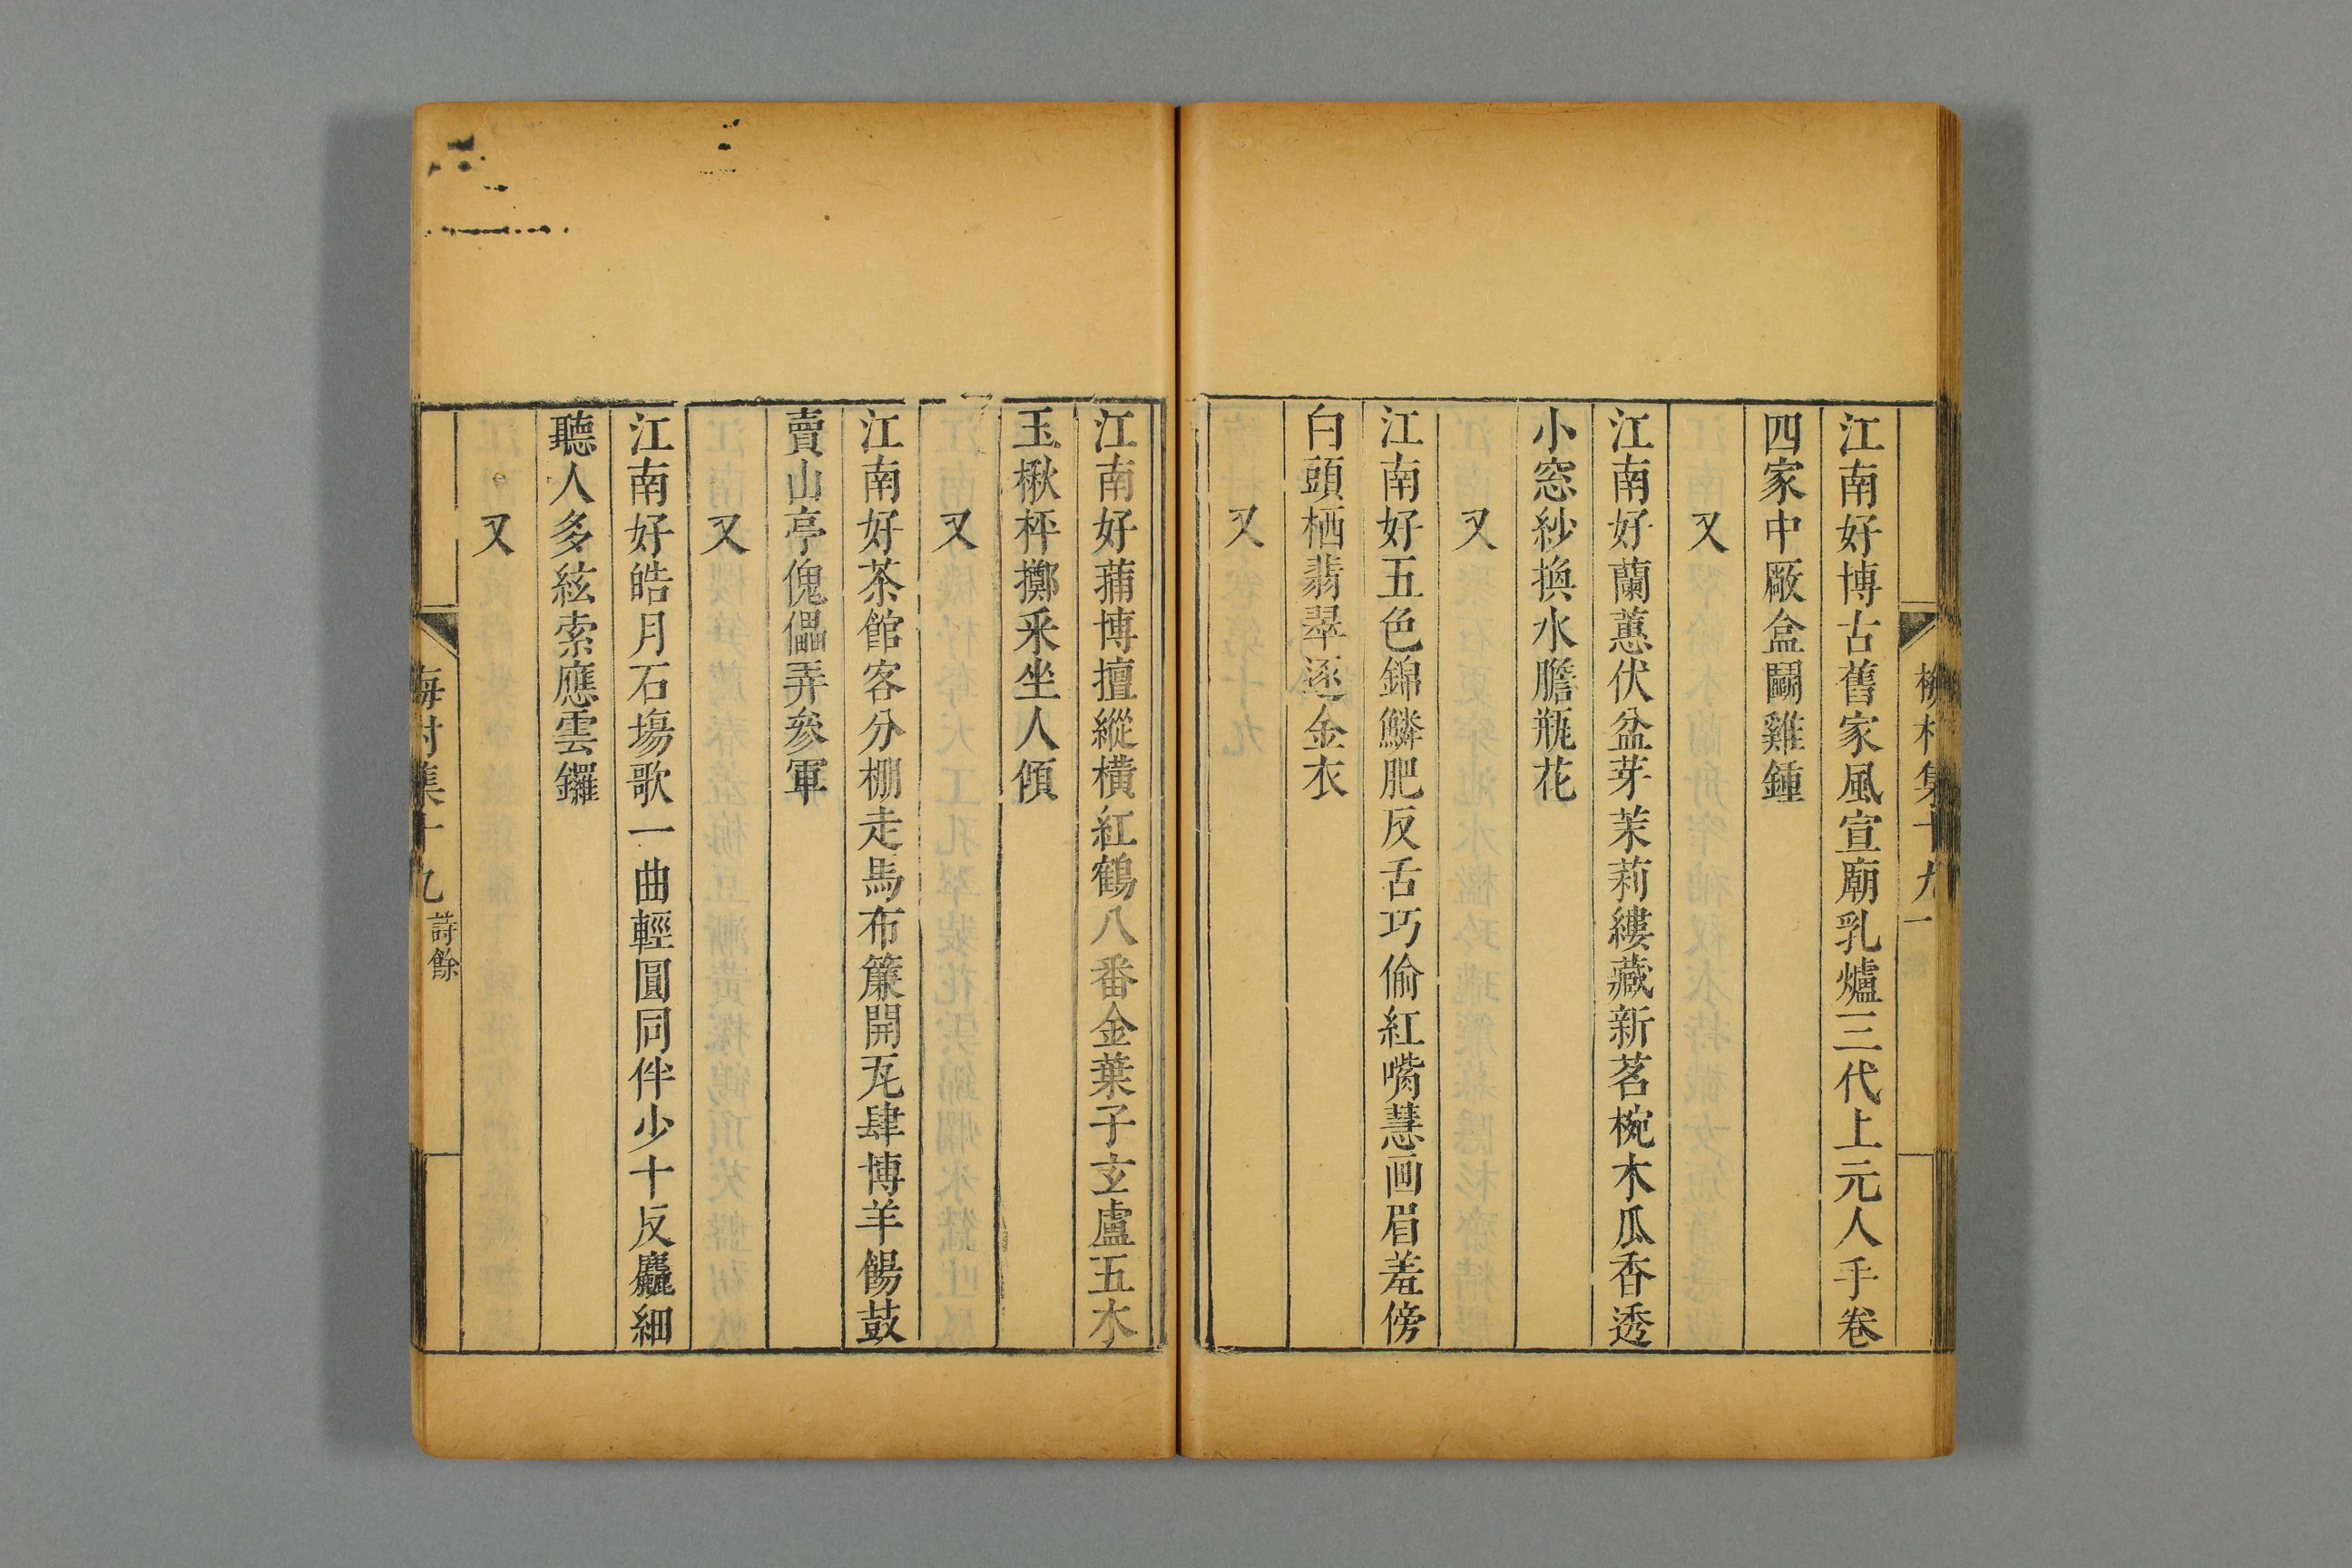 江南好博古舊家風宣廟乳爐三代上元人手卷
四家中厰盒鬬雞鍾
又
江南好蘭蕙伏盆芽茉莉縷藏新茗椀木瓜香透
小窓紗換水膽瓶花
又
江南好五色錦鱗肥反舌巧偷紅嘴慧画眉羞傍
白頭栖翡翠逐金衣
又
江南好蒱博擅縱橫紅鶴八番金葉子玄盧五木
玉楸枰擲采坐人傾
又
江南好茶館客分棚走馬布簾開瓦肆博羊餳鼓
賣山亭傀儡弄參軍
又
江南好皓月石塲歌一曲輕圓同伴少十反麤細
聽人多絃索應雲鑼
又
梅村集十九 詩餘